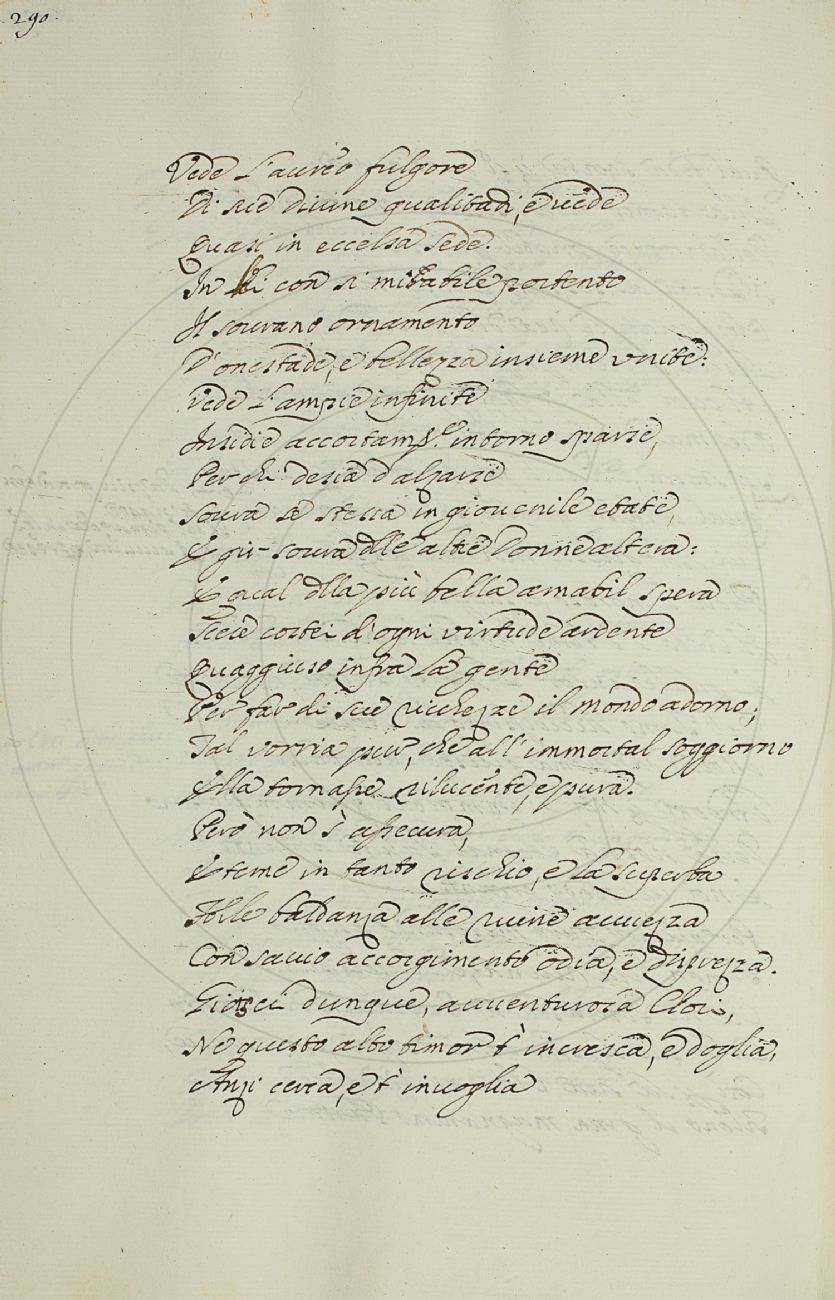 290.
Vede l'aureo fulgore
Di sue divine qualitadi, e vede
Quasi in eccelsa sede.
In lei con sì mirabile portento
Il sovrano ornamento
D'onestade, e bellezza insieme unite:
Vede l'ampie infinite
Insidie accortam.te intorno sparse,
Per chi desia d'alzarse
Sovra se stessa in giovenile etate,
E gir sovra dlle altre Donne altera:
E qual dlla più bella amabil spera
Scese costei d'ogni virtude ardente
Quaggiuso infra la gente
Per far di sue ricchezze il mondo adorno;
Tal vorria pur, che all'immortal soggiorno
Ella tornasse rilucente, e pura.
Però non s'assecura,
E teme in tanto rischio, e la superba
Folle baldanza alle ruine avvezza
Con savio accorgimento odia, e disprezza.
Gioisci dunque, avventurosa Clori,
Ne questo alto timor t'incresca, e doglia,
Anzi cerca, e t'invoglia